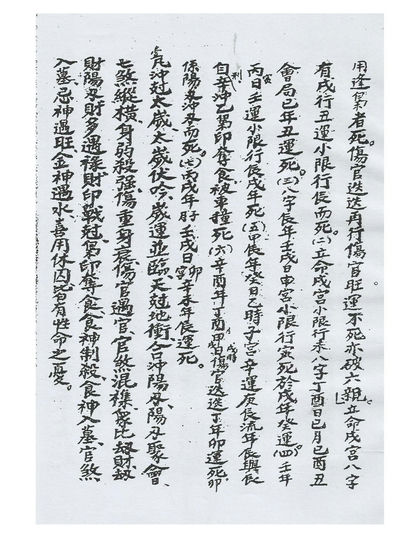 用逢梟者死。傷官迭迭再行傷官旺運不死亦破六親。立命戌宮八字
有戌行丑運小限行辰而死。(二)立命戌宮小限行未八字丁酉日巳月己酉丑
會局巳年丑運死。(三)八字辰年壬戌日申宮小限行寅死於戌年癸運(四)壬年
丙日壬運小限行辰戌年死(五)甲辰子癸日乙時子宮辛運庚辰流年辰與辰
自刑辛沖乙梟印奪食被車撞死(六)辛酉年丁酉甲傷官迭迭丁年卯運死卯
係陽刃沖刃而死。(七)丙戌年 壬戌日 宮辛未年辰運死。
凡沖尅太歲、太歲伏吟、歲運並臨、天尅地衝、合沖陽刃、陽刃聚會、
七煞縱橫身弱殺強傷重身衰傷官遇官、官煞混襍、眾比刼財、刼
財陽刃財多遇祿財印戰尅、梟印奪食、食神制殺、食神入墓、官煞
入墓、忌神遇旺金神遇水喜用休囚皆有性命之憂。